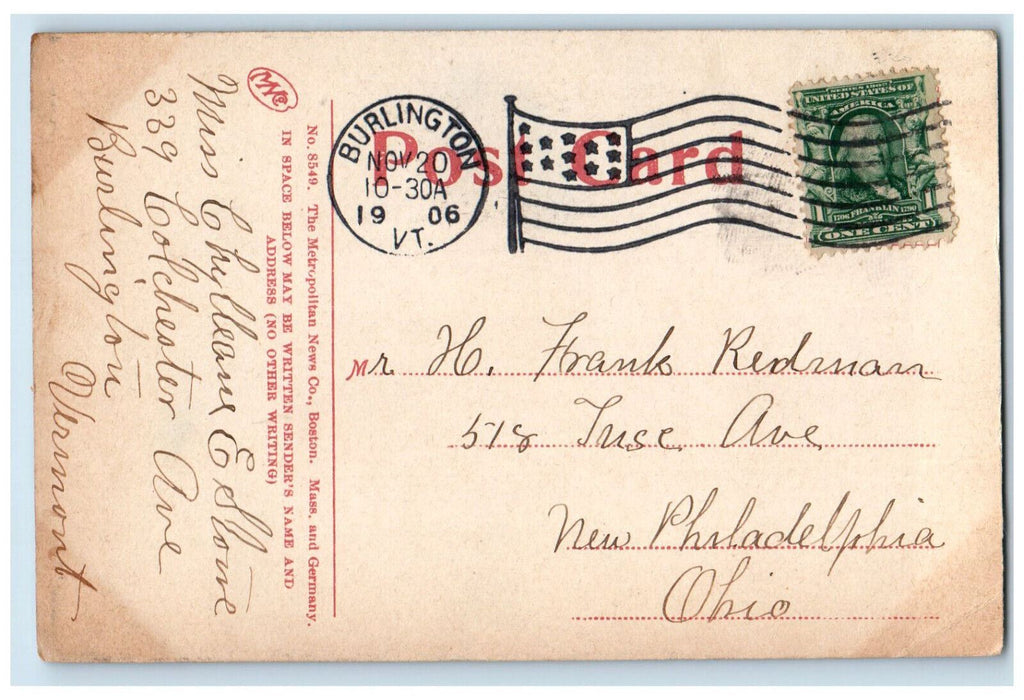 Post Card
BURLINGTON
NOV 20
10-30A
19 06
VT.
SERIES 1902
UNITED STATES OF
AMERICA
1 1
1706 FRANKLIN 1790
ONE CENT
Mr H. Frank Redman
518 Ave
New Philadelphia
Ohio
MNCo
No. 8549. The Metropolitan News Co., Boston. Mass. and Germany.
IN SPACE BELOW MAY BE WRITTEN SENDER'S NAME AND
ADDRESS (NO OTHER WRITING)
Miss E Stone
339 Colchester Ave
Burlington
Vermont